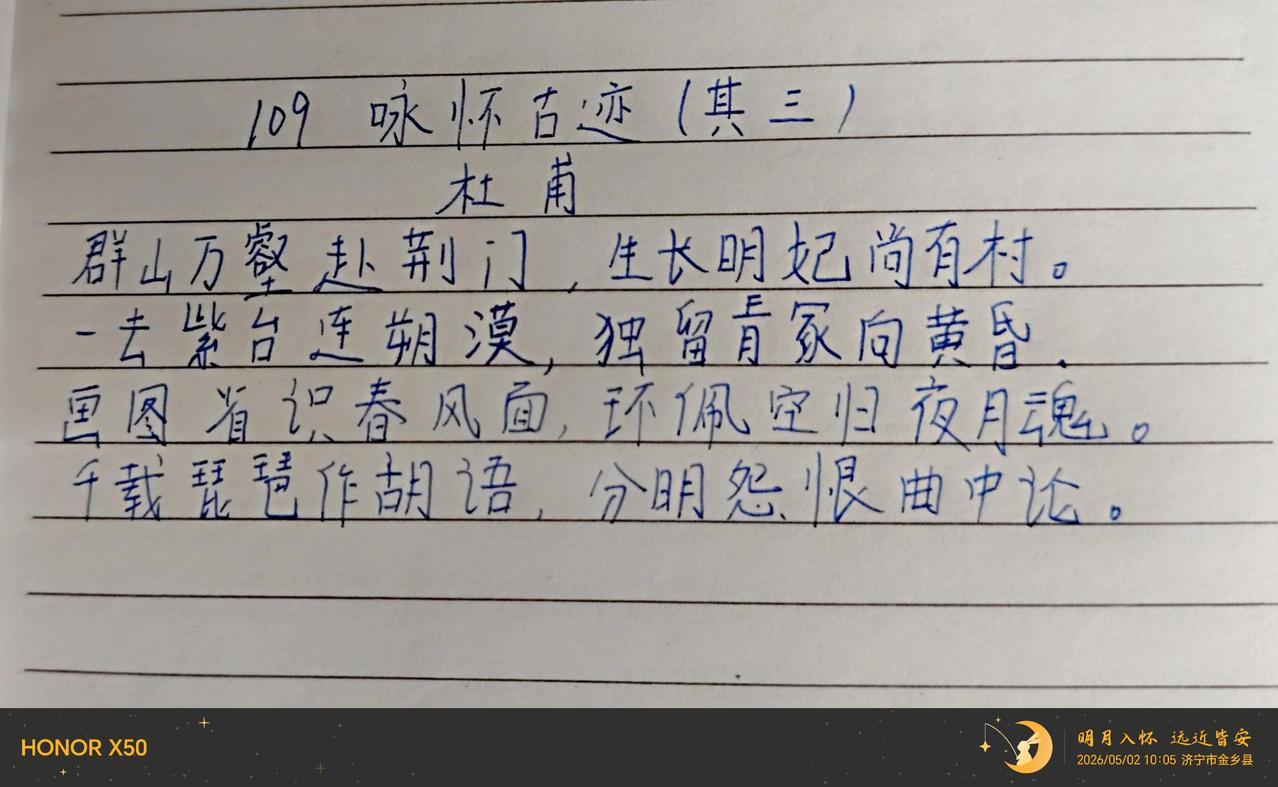 109 咏怀古迹(其三)
杜甫
群山万壑赴荆门,生长明妃尚有村。
一去紫台连朔漠,独留青冢向黄昏.
画图省识春风面,环佩空归夜月魂。
千载琵琶作胡语,分明怨恨曲中论。
HONOR X50
明月入怀 远近皆安
2026/05/02 10:05 济宁市金乡县